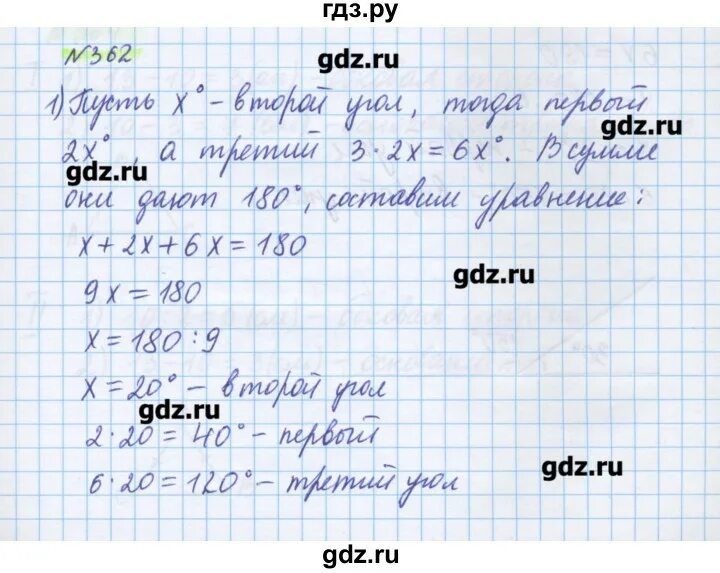 гдз.ру
№362
gdz.ru
1) Пусть x° – второй угол, тогда первый
gdz.ru
2x°, а третий 3·2x=6x°. В сумме
gdz.ru
они дают 180°, составим уравнение:
x+2x+6x=180
gdz.ru
9x=180
x=180:9
x=20° – второй угол
gdz.ru
2·20=40° – первый
gdz.ru
6·20=120° – третий угол
gdz.ru